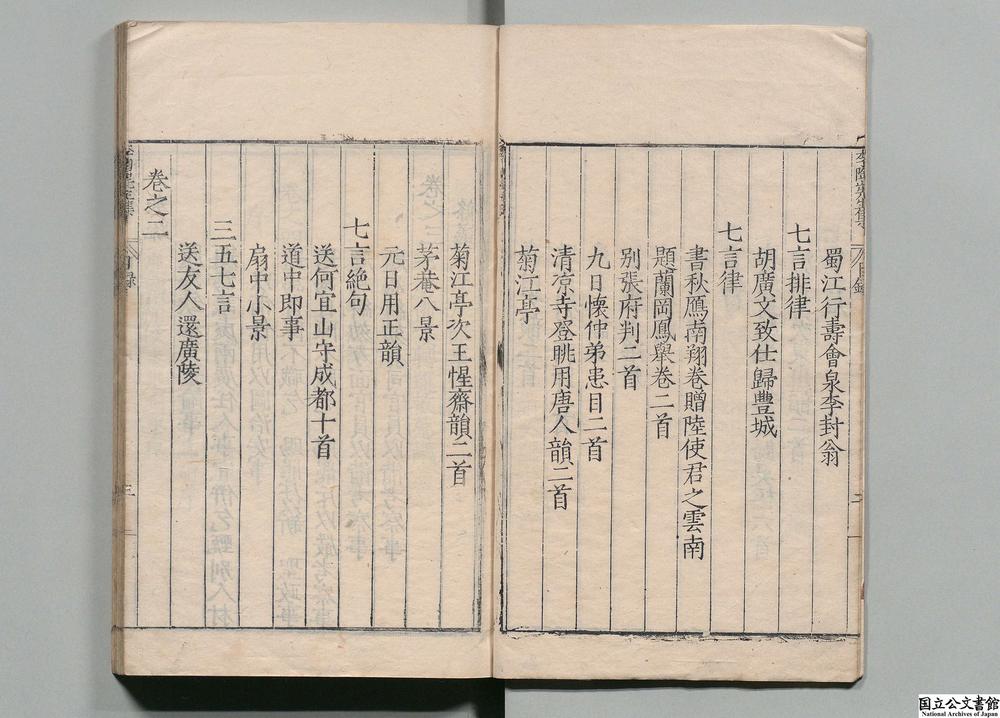 蜀江行壽會泉李封翁
七言排律
胡廣文致仕歸豐城
七言律
書秋鴈南翔卷贈陸使君之雲南
題蘭岡鳳舉卷二首
別張府判二首
九日懷仲弟患目二首
清凉寺登眺用唐人韻二首
菊江亭
菊江亭次王惺齋韻二首
茅菴八景
元日用正韻
七言絶句
送何宜山守成都十首
道中即事
扇中小景
三五七言
送友人還廣陵
卷之二
目錄
三
国立公文書館
National Archives of Japan